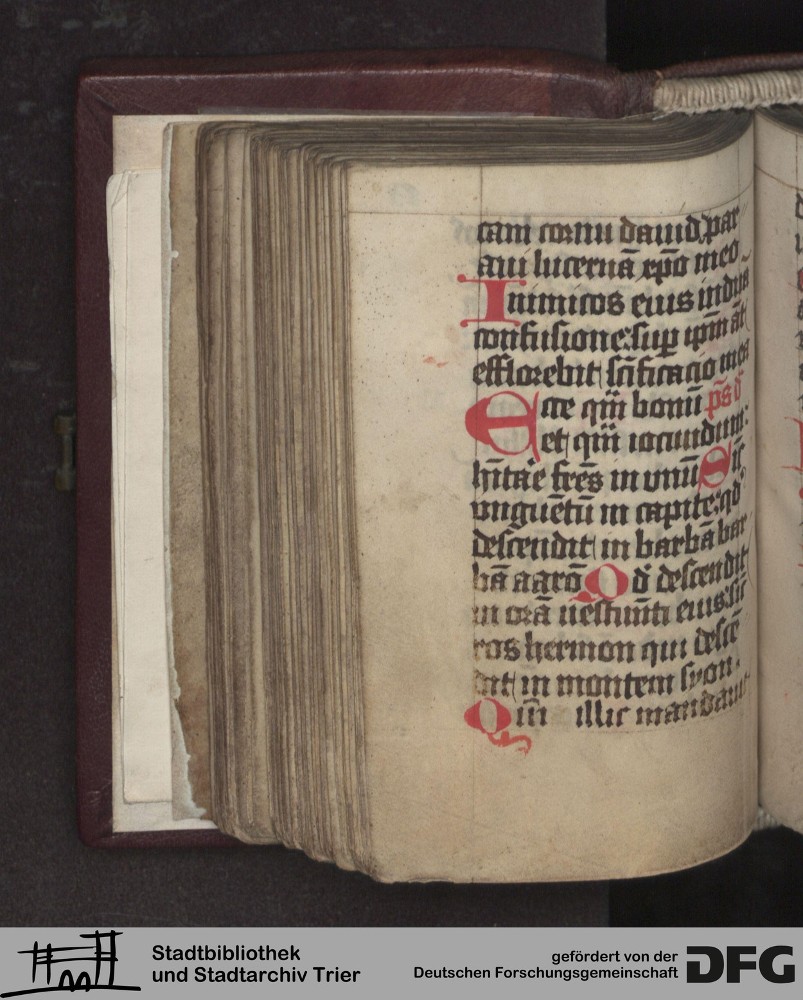 cam cornu dauid par
aui lucernā xp̄o meo
Inimicos eius indua
confusione: sup ip̄m āt
efflorebit sc̄ificatio mea
Ecce qm̄ bonū ps d
et qm̄ iocundum:
hītare fr̄es in vnū Sic̄
vnguētū in capite: qd̓
descendit in barbā bar
bā aarō Qd̓ descendit
in orā uestim̄ti eius: sic̄
ros hermon qui descē
dit in montem syon.
Qm̄ illic mandauit
Stadtbibliothek
und Stadtarchiv Trier
gefördert von der
Deutschen Forschungsgemeinschaft
DFG